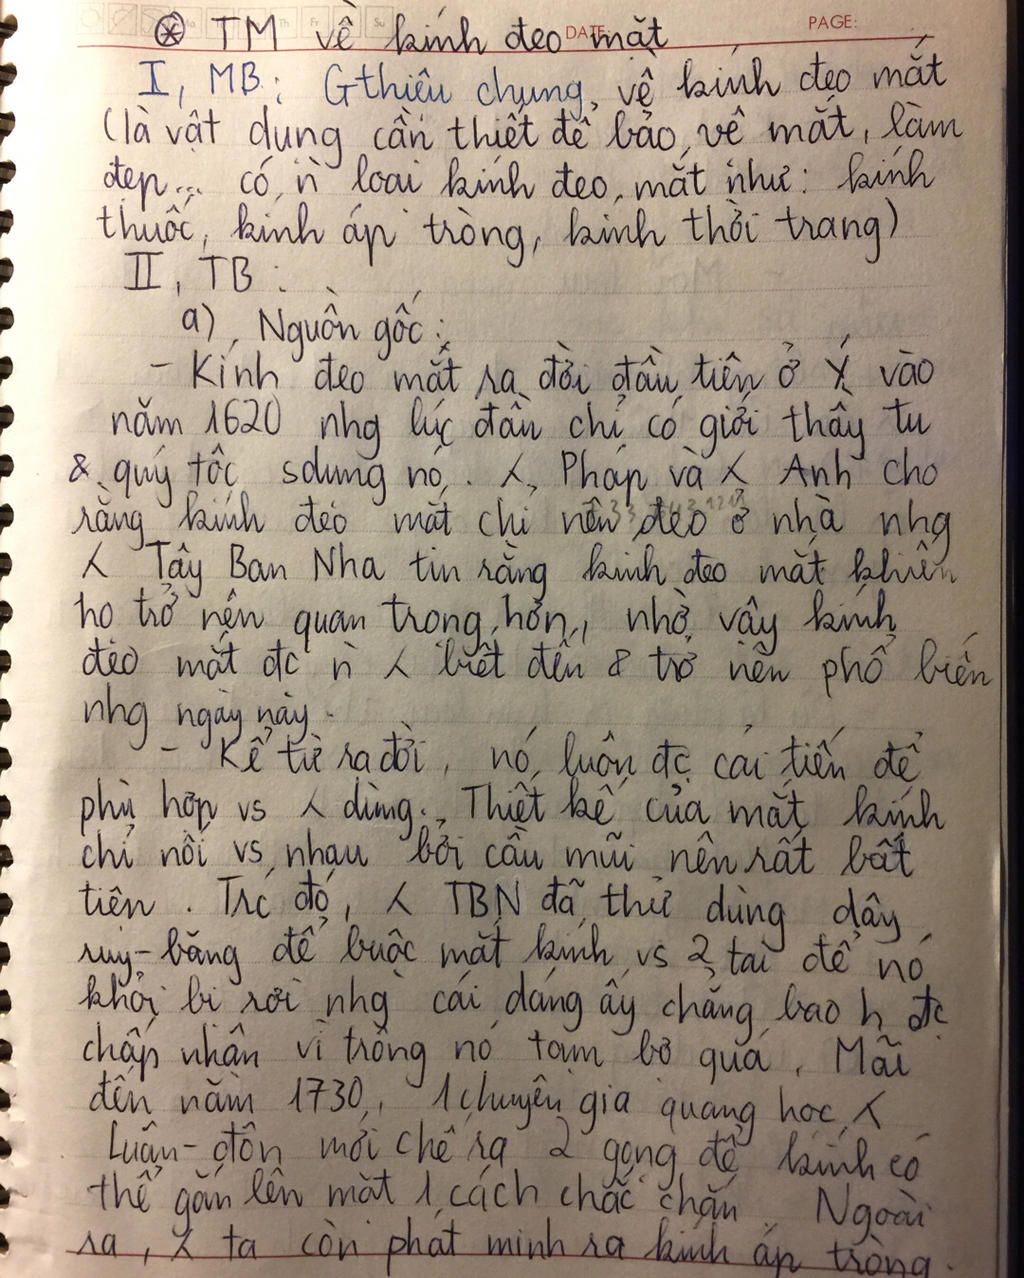 Th Fr Su
DATE PAGE:
⊛ TM về kính đeo mắt
I, MB: Gthiêu chung, về kính đeo mắt
(là vật dụng cần thiết để bảo vệ mắt, làm
đẹp... có n̄ loại kính đeo mắt như: kính
thuốc, kính áp tròng, kính thời trang)
II, TB:
a), Nguồn gốc:
- Kính đeo mắt ra đời đầu tiên ở Ý vào
năm 1620 nhg lúc đầu chỉ có giới thầy tu
& quý tộc sdụng nó. Pháp và Anh cho
rằng kính đeo mắt chỉ nên đeo ở nhà nhg
Tây Ban Nha tin rằng kính đeo mắt khiến
họ trở nên quan trọng hơn, nhờ vậy kính
đeo mắt đc n̄ biết đến & trở nên phổ biến
nhg ngày này.
- Kể từ ra đời, nó luôn đc cải tiến để
phù hợp vs dùng. Thiết kế của mắt kính
chỉ nối vs nhau bởi cầu mũi nên rất bất
tiện. Trc đó, TBN đã thử dùng dây
ruy-băng để buộc mắt kính vs 2 tai để nó
khỏi bị rơi nhg cái dáng ấy chẳng bao h đc
chấp nhận vì trông nó tạm bợ quá. Mãi
đến năm 1730, 1 chuyên gia quang học
Luân-đôn mới chế ra 2 gọng để kính có
thể gắn lên mắt 1 cách chắc chắn. Ngoài
ra, ta còn phát minh ra kính áp tròng.